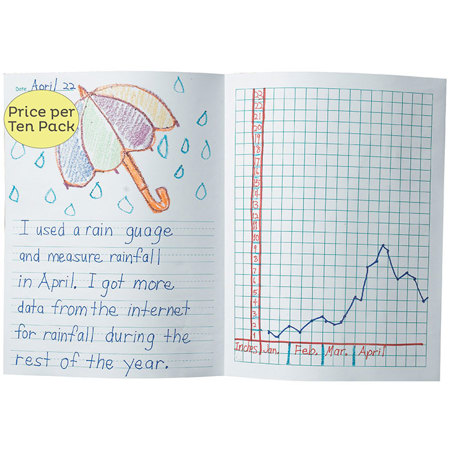 Date April 22
Price per
Ten Pack
I used a rain guage
and measure rainfall
in April. I got more
data from the internet
for rainfall during the
rest of the year.
10
9
8
7
6
5
4
3
2
1
Inches Jan. Feb. Mar. April